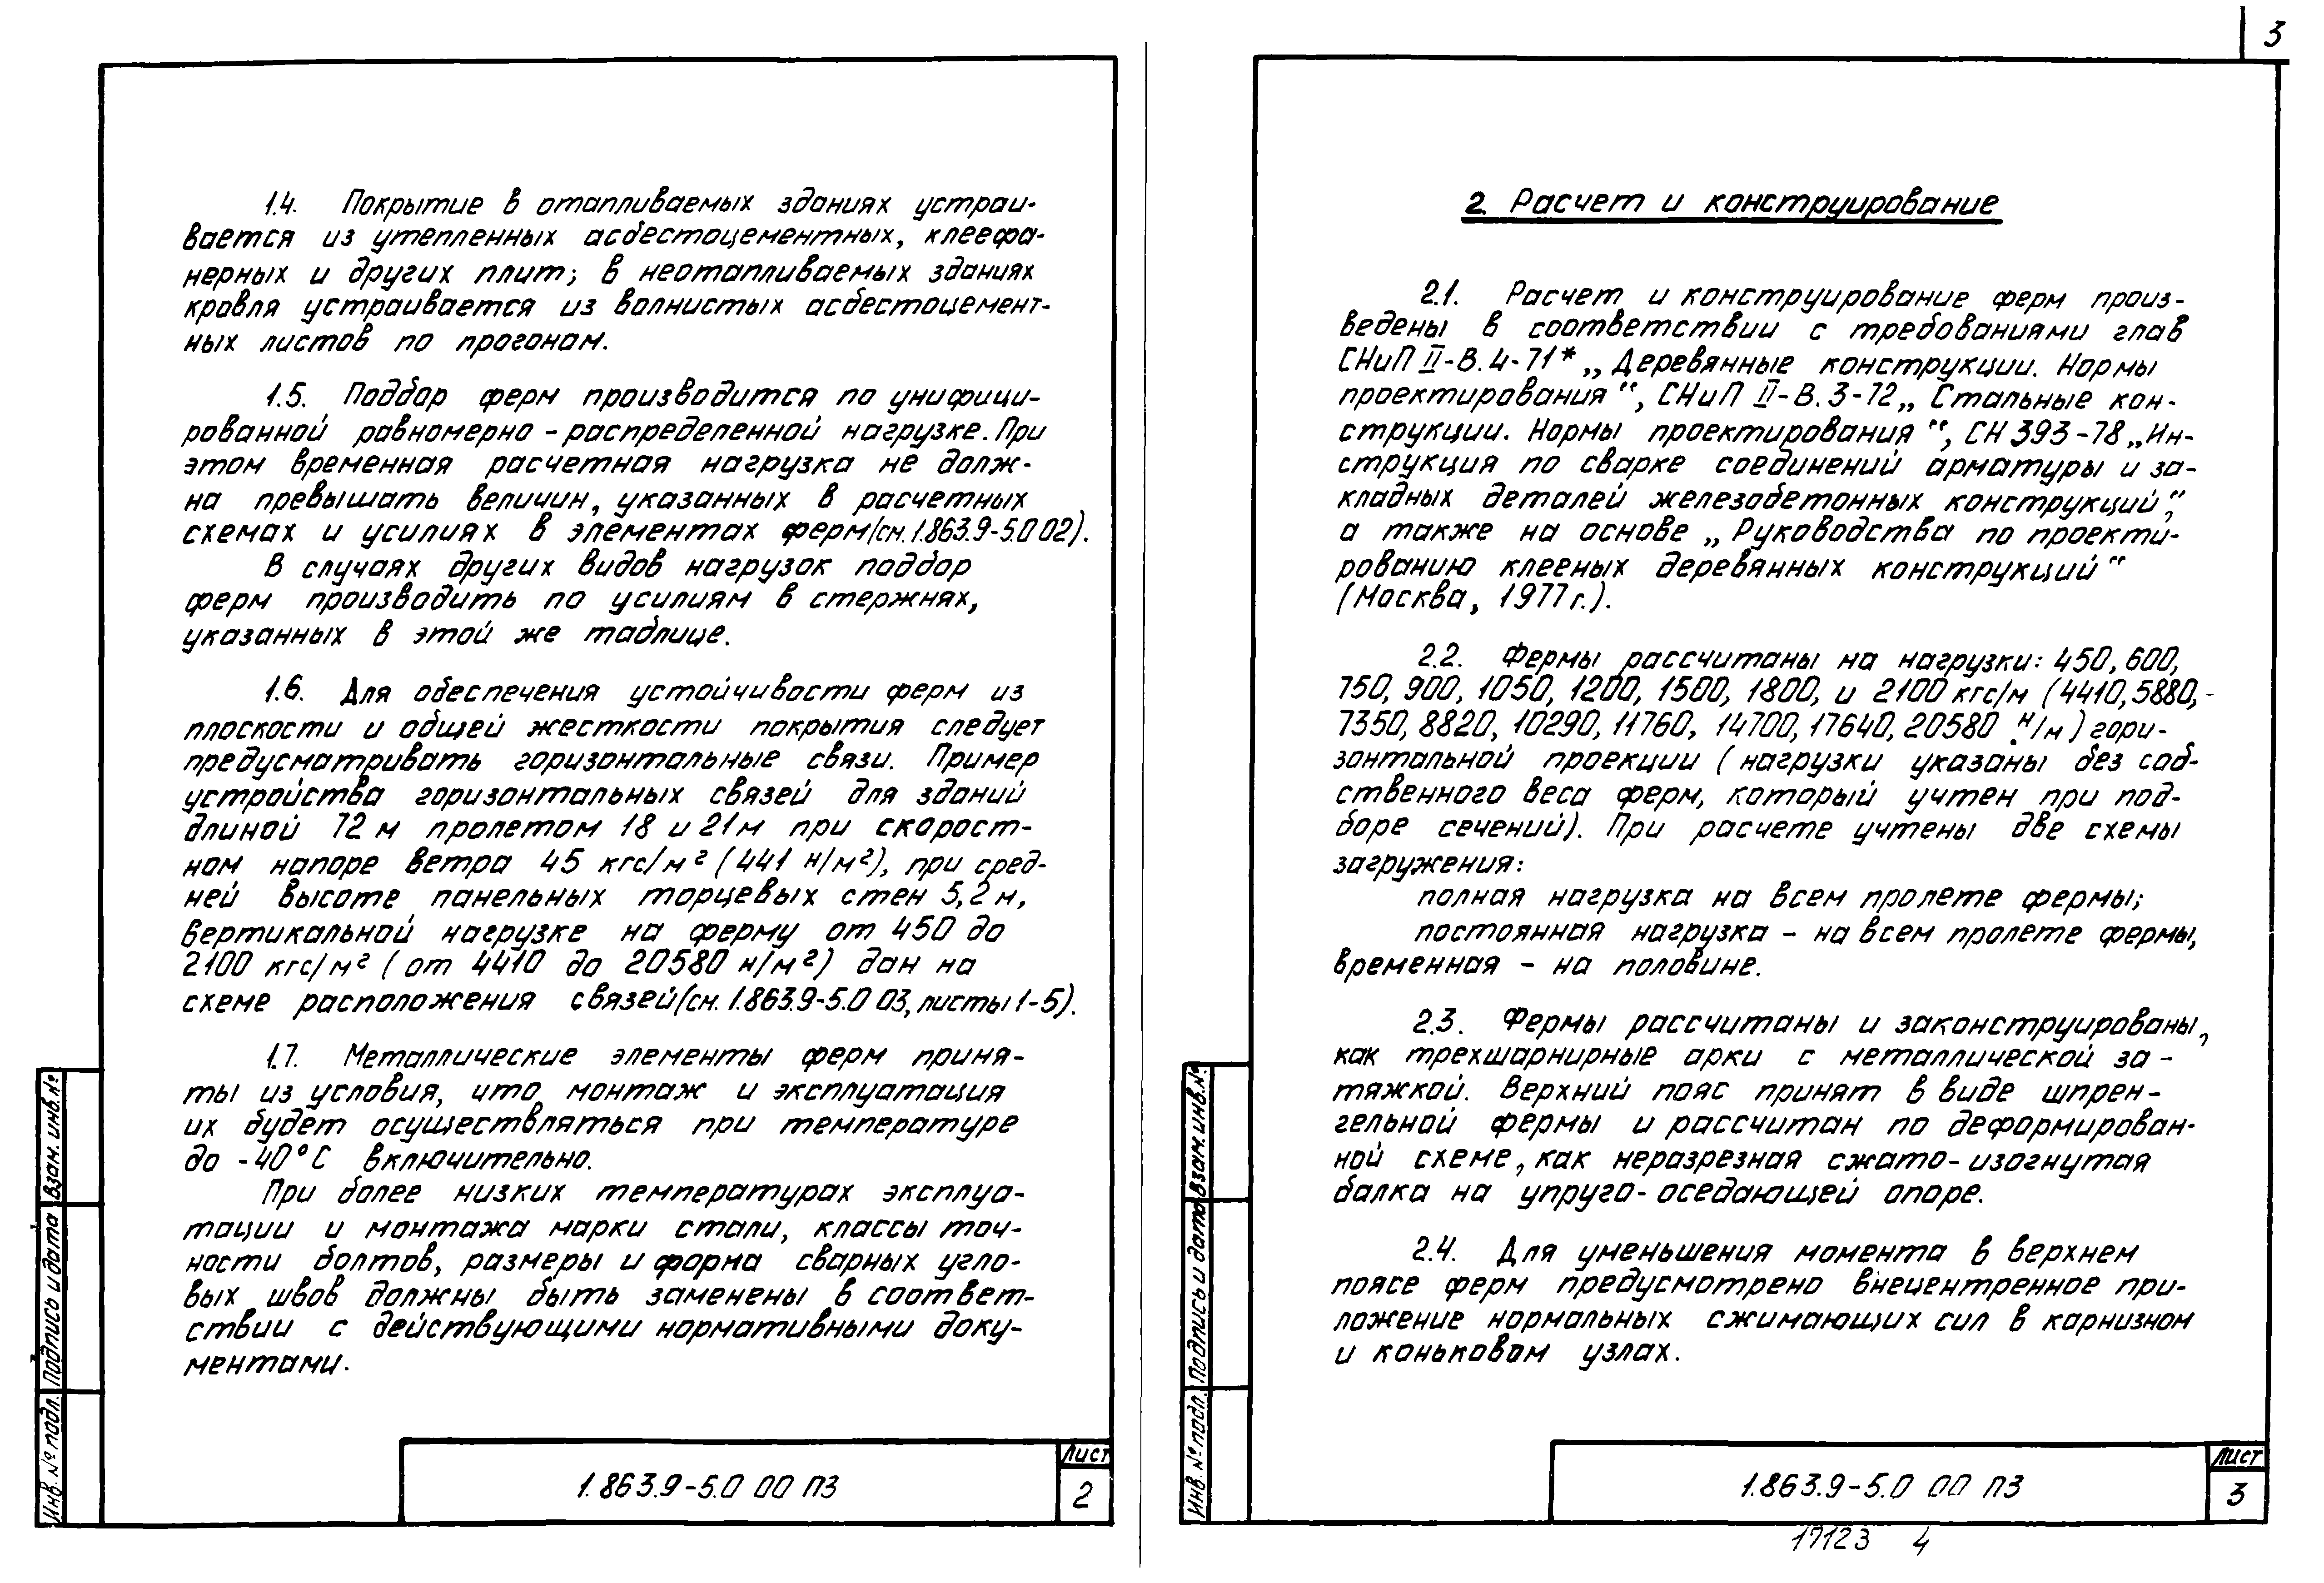 3
1.4. Покрытие в отапливаемых зданиях устраи-
вается из утепленных асбестоцементных, клеефа-
нерных и других плит; в неотапливаемых зданиях
кровля устраивается из волнистых асбестоцемент-
ных листов по прогонам.
1.5. Подбор ферм производится по унифици-
рованной равномерно-распределенной нагрузке. При
этом временная расчетная нагрузка не долж-
на превышать величин, указанных в расчетных
схемах и усилиях в элементах ферм (см. 1.863.9-5.0 02).
В случаях других видов нагрузок подбор
ферм производить по усилиям в стержнях,
указанных в этой же таблице.
1.6. Для обеспечения устойчивости ферм из
плоскости и общей жесткости покрытия следует
предусматривать горизонтальные связи. Пример
устройства горизонтальных связей для зданий
длиной 72 м пролетом 18 и 21м при скорост-
ном напоре ветра 45 кгс/м² (441 н/м²), при сред-
ней высоте панельных торцевых стен 5,2 м,
вертикальной нагрузке на ферму от 450 до
2100 кгс/м² (от 4410 до 20580 н/м²) дан на
схеме расположения связей (см. 1.863.9-5.0 03, листы 1-5).
1.7. Металлические элементы ферм приня-
ты из условия, что монтаж и эксплуатация
их будет осуществляться при температуре
до -40°С включительно.
При более низких температурах эксплуа-
тации и монтажа марки стали, классы точ-
ности болтов, размеры и форма сварных угло-
вых швов должны быть заменены в соответ-
ствии с действующими нормативными доку-
ментами.
Инв. № подл. Подпись и дата Взам. инв. №
1.863.9-5.0 00 ПЗ
Лист
2
2. Расчет и конструирование
2.1. Расчет и конструирование ферм произ-
ведены в соответствии с требованиями глав
СНиП II-В.4-71* „Деревянные конструкции. Нормы
проектирования“, СНиП II-В.3-72 „Стальные кон-
струкции. Нормы проектирования“, СН 393-78 „Ин-
струкция по сварке соединений арматуры и за-
кладных деталей железобетонных конструкций“,
а также на основе „Руководства по проекти-
рованию клееных деревянных конструкций“
(Москва, 1977г.).
2.2. Фермы рассчитаны на нагрузки: 450, 600,
750, 900, 1050, 1200, 1500, 1800, и 2100 кгс/м (4410, 5880,
7350, 8820, 10290, 11760, 14700, 17640, 20580 н/м) гори-
зонтальной проекции (нагрузки указаны без соб-
ственного веса ферм, который учтен при под-
боре сечений). При расчете учтены две схемы
загружения:
полная нагрузка на всем пролете фермы;
постоянная нагрузка - на всем пролете фермы,
временная - на половине.
2.3. Фермы рассчитаны и законструированы,
как трехшарнирные арки с металлической за-
тяжкой. Верхний пояс принят в виде шпрен-
гельной фермы и рассчитан по деформирован-
ной схеме, как неразрезная сжато-изогнутая
балка на упруго-оседающей опоре.
2.4. Для уменьшения момента в верхнем
поясе ферм предусмотрено внецентренное при-
ложение нормальных сжимающих сил в карнизном
и коньковом узлах.
Инв. № подл. Подпись и дата Взам. инв. №
1.863.9-5.0 00 ПЗ
Лист
3
17123 4